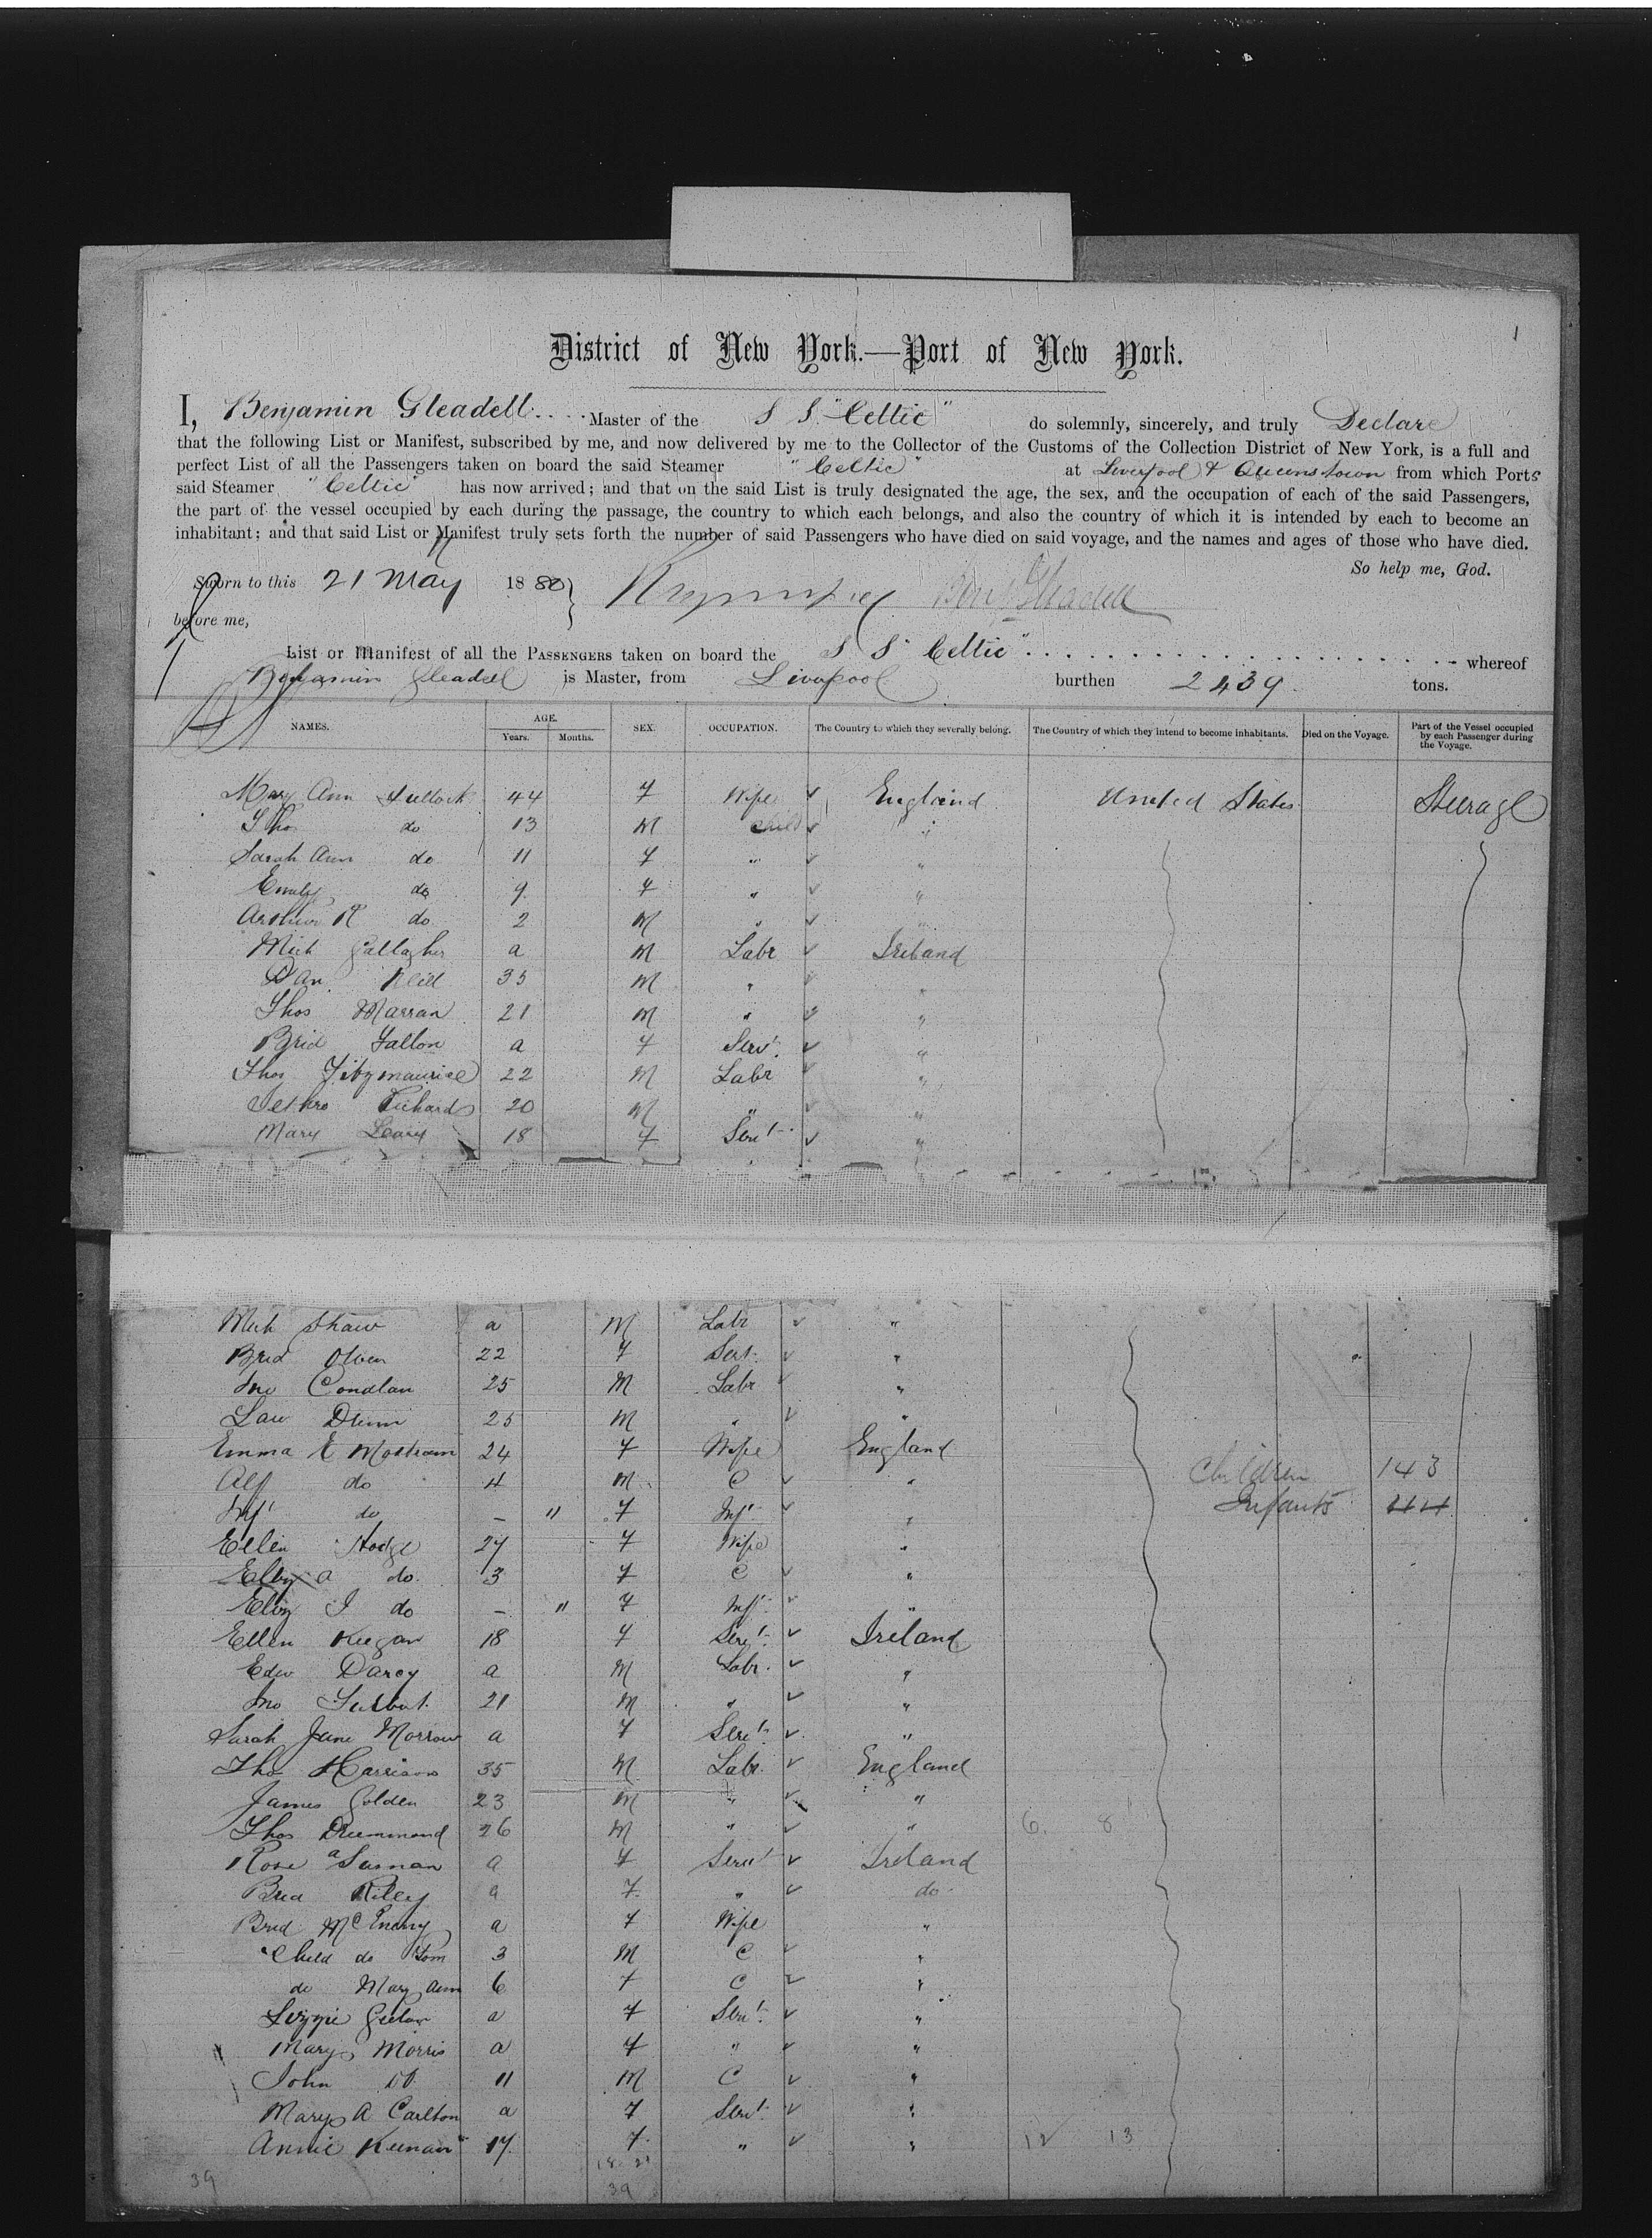 1
District of New York.—Port of New York.
I, Benjamin Gleadell. . . . . Master of the S S. "Celtic" do solemnly, sincerely, and truly Declare
that the following List or Manifest, subscribed by me, and now delivered by me to the Collector of the Customs of the Collection District of New York, is a full and
perfect List of all the Passengers taken on board the said Steamer "Celtic" at Liverpool & Queenstown from which Ports
said Steamer "Celtic" has now arrived; and that on the said List is truly designated the age, the sex, and the occupation of each of the said Passengers,
the part of the vessel occupied by each during the passage, the country to which each belongs, and also the country of which it is intended by each to become an
inhabitant; and that said List or Manifest truly sets forth the number of said Passengers who have died on said voyage, and the names and ages of those who have died.
So help me, God.
Sworn to this 21 May 1880 } Benj Gleadell
before me,
List or Manifest of all the PASSENGERS taken on board the S S "Celtic" . . . . . . . . whereof
Benjamin Gleadell is Master, from Liverpool burthen 2439. tons.
NAMES. AGE. Years. Months. SEX. OCCUPATION. The Country to which they severally belong. The Country of which they intend to become inhabitants. Died on the Voyage. Part of the Vessel occupied by each Passenger during the Voyage.
Mary Ann 44 F Wife England United States Steerage
Thos do 13 M Child "
Sarah Ann do 11 F " "
Emily do 9 F " "
Arthur R do 2 M " "
Mich Gallagher a M Labr Ireland
Dan Neill 35 M " "
Thos Marran 21 M " "
Brid Fallon a F Servt. "
Thos Fitzmaurice 22 M Labr "
Jethro Richards 20 M " "
Mary Leary 18 F Servt. "
Mich Shaw a M Labr "
Brid 22 F Servt. "
Jno Condlan 25 M Labr "
Law Dunn 25 M " "
Emma E 24 F Wife England
Alf do 4 M C " Children 143
Inft do – " F Inft " Infants 44
Ellen Hodge 27 F Wife "
Eliz a do. 3 F C "
Eliz J do – " F Inft. "
Ellen Keegan 18 F Servt. Ireland
Edw Darcy a M Labr. "
Jno 21 M " "
Sarah Jane Morrow a F Servt. "
Tho Harrison 35 M Labr. England
James Golden 23 M " "
Thos Drummond 26 M " " 6. 8
Rose a F Servt Ireland
Brid Riley a F. " do.
Brid McEnery a F Wife "
Child do Tom 3 M C "
do Mary Ann 6 F C "
Lizzie a F Servt. "
Mary Morris a F " "
John do 11 M C "
Mary A Carlton a F Servt. "
Annie Keenan 17. F. " " 12 13
18 21
39 39